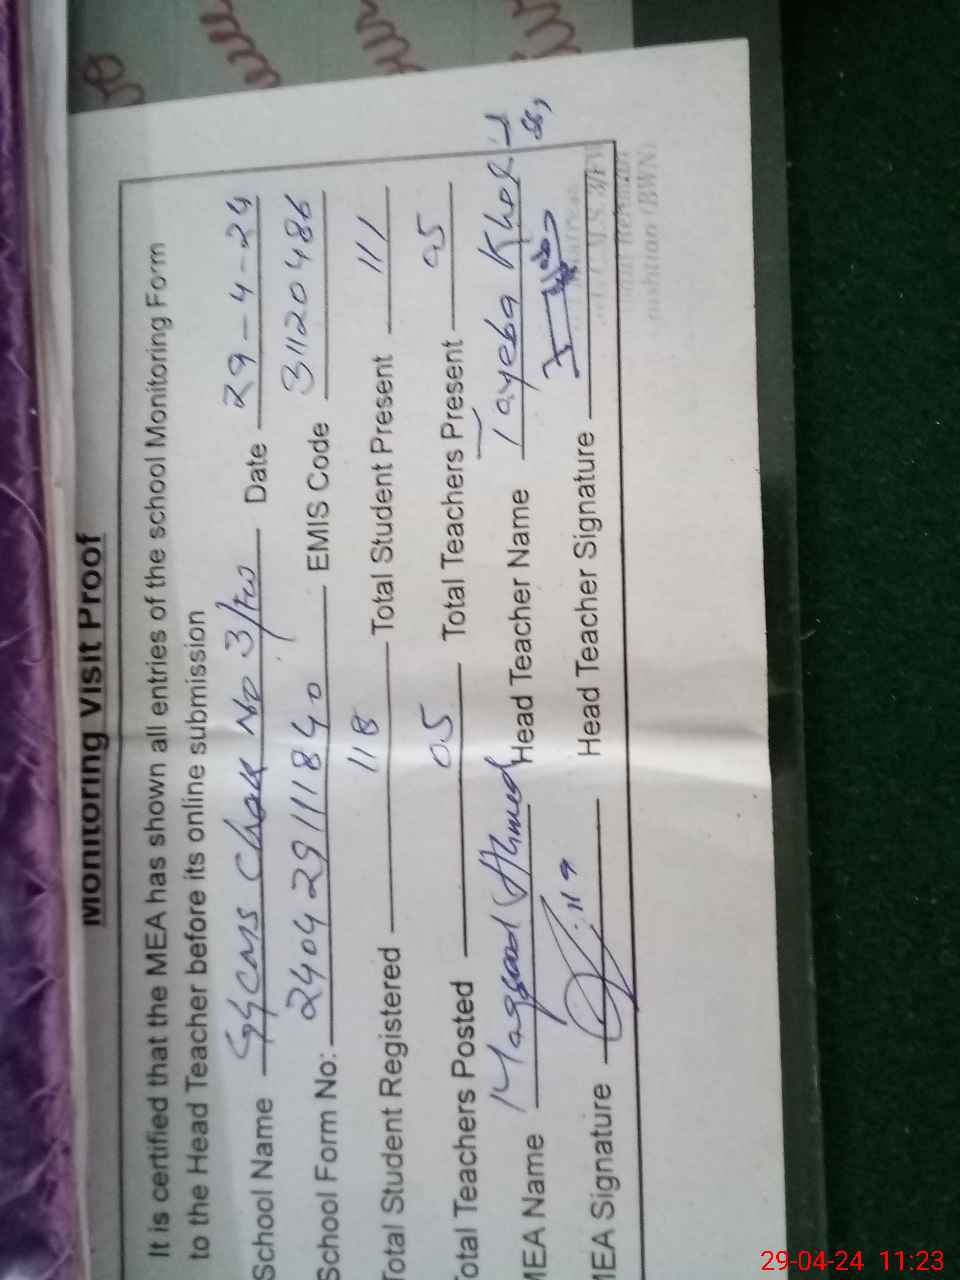 Monitoring Visit Proof
It is certified that the MEA has shown all entries of the school Monitoring Form
to the Head Teacher before its online submission
School Name GGCMS Chak No 3/FW Date 29-4-24
School Form No: 24042911840 EMIS Code 31120486
Total Student Registered 118 Total Student Present 111
Total Teachers Posted 05 Total Teachers Present 05
MEA Name Maqsood Ahmed Head Teacher Name Tayeba
MEA Signature Head Teacher Signature
29-04-24 11:23